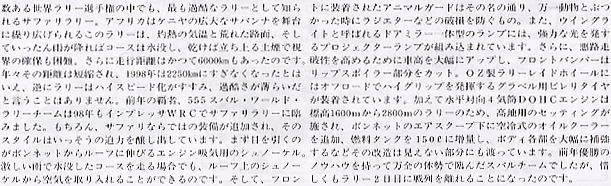 数ある世界ラリー選手権の中でも、最も過酷なラリーとして知ら
れるサファリラリー。アフリカはケニヤの広大なサバンナを舞台
に繰り広げられるこのラリーは、灼熱の気温と荒れた路面、そし
ていったん雨が降ればコースは水没し、乾けば立ち上る土煙で視
界の確保も困難。さらに走行距離はかつて6000kmもあったのです。
年々その距離は短縮され、1998年は2250kmにすぎなくなったとは
いえ、逆にラリーはハイスピード化がすすみ、過酷さが薄らいだ
と言うことはありません。前年の覇者、555スバル・ワールド・
ラリーチームは98年もインプレッサWRCでサファリラリーに臨
みました。もちろん、サファリならではの装備が追加され、その
スタイルはいっそうの迫力を醸し出しています。まず目を引くの
がボンネットからルーフに伸びるエンジン吸気用のシュノーケル。
激しい雨で水没したコースを走る場合でも、ルーフ上のシュノー
ケルから空気を取り入れることができるのです。そして、フロン
トに装着されたアニマルガードはその名の通り、万一動物とぶつ
かった時にラジエターなどの破損を防ぐもの。また、ウイングラ
イトと呼ばれるドアミラー一体型のランプには、強力な光を発す
るプロジェクターランプが組み込まれています。さらに、悪路走
破性を高めるために車高を大幅にアップし、フロントバンパーは
リップスポイラー部分をカット。OZ製ラリーレイドホイールに
はオフロードでハイグリップを発揮するグラベル用ピレリタイヤ
が装着されています。加えて水平対向4気筒DOHCエンジンは
標高1600mから2800mのラリーのため、高地用のセッティングが
施され、ボンネットのエアスクープ下に空冷式のオイルクーラー
を追加、燃料タンクを150ℓに増量し、ボディ各部を大幅に補強
するなどその改造は見えない部分にも渡っています。前年優勝の
ノウハウを持って万全の体勢で臨んだスバルチームでしたが、惜
しくもラリー2日目に戦列を離れることになったのです。